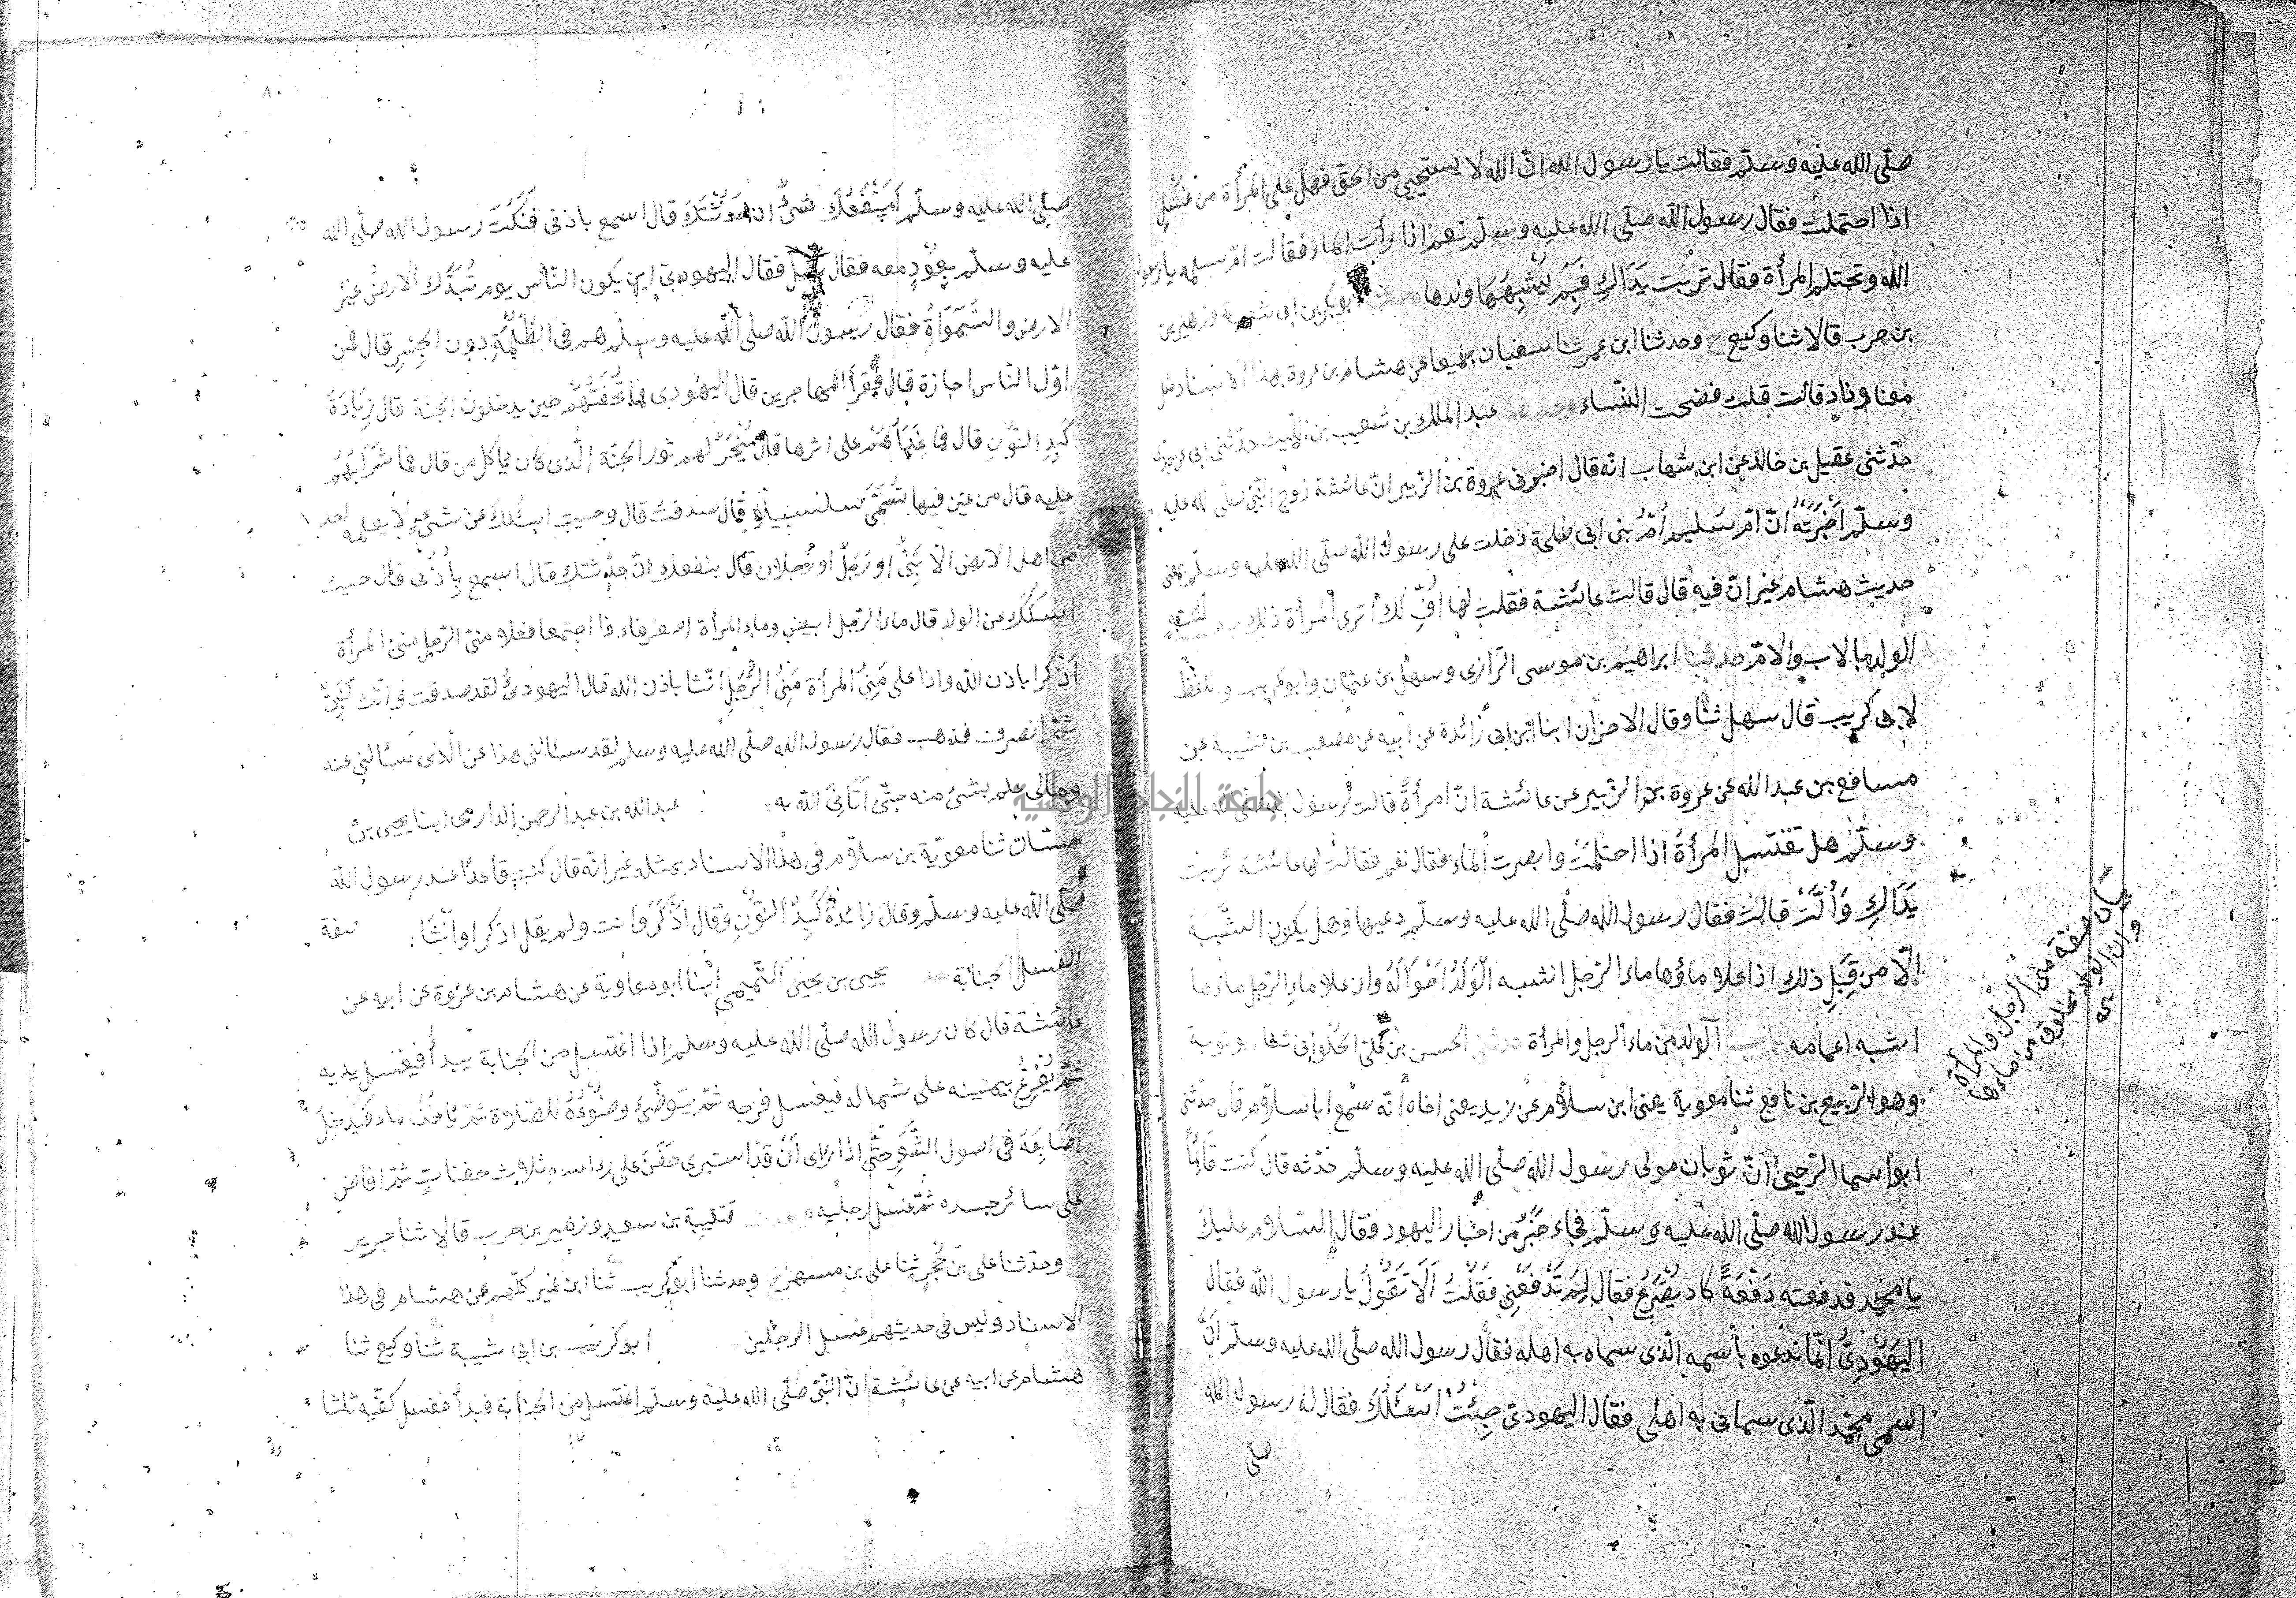 صلّى الله عليه وسلّم فقالت يا رسول الله انّ الله لا يستحيي من الحقّ فهل على المرأة من غسل
اذا احتملت فقال رسول الله صلّى الله عليه وسلّم نعم اذا رأت الماء فقالت امّ سلمه يا رسول
الله وتحتلم المرأة فقال تربت يَدَاكِ فَبِمَ يُشْبِهُهَا ولدها حدثنا ابو بكر بن ابى شيبة وزهير بن
بن حرب قالا ثنا وكيع ح وحدثنا ابن عمر ثنا سفيان جميعا عن هشام بن عروة بهذا الاسناد مثل
معنا وزاد قالت قلت فضحت النّساء وحدثنا عبد الملك بن شعيب بن اللّيث حدّثنى ابى عن جدّى
حدّثنى عقيل بن خالد عن ابن شهاب انّه قال اخبرنى عروة بن الزّبير انّ عائشة زوج النّبيّ صلّى الله عليه
وسلّم اَخْبَرَتْهُ انّ امّ سُليم اُمّ بنى ابى طلحة دخلت على رسول الله صلّى الله عليه وسلّم بمعنى
حديث هشام غير انّ فيه قال قالت عائشة فقلت لها اُفٍّ لك اترى المرأة ذلك
الولد بالاب والامّ حدثنا ابراهيم بن موسى الرّازى وسهل بن عثمان وابو كريب واللفظ
لابى كريب قال سهل ثنا وقال الاخران ابنا ابن ابى زائدة عن ابيه عن مصعب بن شيبة عن
مسافع بن عبد الله عن عروة بن الزّبير عن عائشة انّ امرأةً قالت لرسول الله صلّى الله عليه
وسلّم هل تغتسل المرأةُ اذا احتلمت وابصرت الماء فقال نعم فقالت لها عائشة تربت
يَدَاكِ وَاُلَّتْ قالت فقال رسول الله صلّى الله عليه وسلّم دعيها وهل يكون الشّبه
الّا من قِبَلِ ذلك اذا علا ماؤها ماء الرّجل اشبه الْوَلَدُ اَخْوَالَهُ واذ علا ماء الرّجل ماءها
اشبه اعمامه باب الولد من ماء الرجل والمرأة حدثنى الحسن بن علىّ الحلوانى ثنا ابو توبة
وهو الرّبيع بن نافع ثنا معوية يعنى ابن سلّام عن زيد يعنى اخاه انّه سمع ابا سلّام قال حدّثنى
ابو اسما الرّحبىّ انّ ثوبان مولى رسول الله صلّى الله عليه وسلّم حدّثه قال كنت قائمًا
عند رسول الله صلّى الله عليه وسلّم فجاء حَبْرٌ من احبار اليهود فقال السّلام عليك
يا محمّد فدفعته دَفْعَةً كاد يُصْرَعُ فقال لِمَ تَدْفَعُنِي فَقُلْتُ اَلَا تَقُولُ يا رسول الله فقال
اليَهُودِيُّ انّما ندعوه بأسمه الّذى سماه به اهله فقال رسول الله صلّى الله عليه وسلّم اِنَّ
اسمى محمّد الّذى سمانى به اهلى فقال اليهودىّ جِئْتُ اَسْئَلُكَ فقال له رسول الله
صلّى
بيان صفة منى الرّجل والمرأة
وانّ الولد مخلوق من ماءهما
٨٠
صلّى الله عليه وسلّم أَيَنْفَعُكَ شئٌ ان حَدَّثْتُكَ قال اسمع باذنى فَنَكَتَ رسول الله صلّى الله
عليه وسلّم بِعُودٍ معه فقال سل فقال اليهودىّ اين يكون النّاس يوم تُبَدَّل الارضُ غير
الارض والسّمَوَاةُ فقال رسول الله صلّى الله عليه وسلّم هم فى الظُّلْمَةِ دون الجِسْرِ قال فمن
اوّل النّاس اجازة قال فقرأ المهاجرين قال اليهودى فما تُحْفَتُهُمْ حين يدخلون الجنّة قال زِيَادَةُ
كَبِدِ النُّونِ قال فما غَدَاؤُهُم على اثرها قال يُنْحَرُ لهم ثور الجنّة الّذى كان ياكل من قال فما شَرَابُهُمْ
عليه قال من عين فيها تُسَمَّى سلسبيلا قال صدقت قال وجيت اسئلك عن شئٍ لا يعلمه احد
من اهل الارض الّا نَبِيٌّ او رَجُلٌ او رَجُلان قال ينفعك انّ حدّثتك قال اسمع بِاُذُنى قال جيت
اسئلك عن الولد قال ماء الرّجل ابيض وماء المرأة اصفر فاذا اجتمعا فعلا منىّ الرّجل منىّ المرأة
اَذْكَرا باذن الله واذا على مَنِيُّ المرأة مَنِيَّ الرَّجُلِ انّثا باذن الله قال اليهودىُّ لقد صدقت وانّك لَنَبِيٌّ
ثمّ انصرف فذهب فقال رسول الله صلّى الله عليه وسلم لقد سئالنى هذا عن الّذى سئالنى عنه
ومالى علم بشئ منه حتّى اَتَانِىَ الله به عبد الله بن عبد الرحمن الدارمى ابنا يحيى بن
حسّان ثنا معوية بن سلّام فى هذا الاسناد بمثله غير انّه قال كنت قاعدًا عند رسول الله
صلّى الله عليه وسلّم وقال زائدةُ كَبِدِ النُّونِ وقال اَذْكَرَ وانث ولم يقل اذكرا وانّثا صفة
الغسل الجنابة يحيى بن يحيى التّميمى اَبْنا ابو معاوية عن هشام بن عروة عن ابيه عن
عائشة قال كان رسول الله صلّى الله عليه وسلم اذا اغتسل من الجنابة يبدأ فيغسل يديه
ثمّ يُفْرِغُ بيمينه على شماله فيغسل فرجه ثمّ يتوضّئ وضُوْءَهُ للصّلاة ثمّ ياخُذُ ماء فيدخل
اَصَابِعَهُ فى اصول الشَّعَرِ حتّى اذا راى اَنْ قد استبرى حَفَنَ على راسه ثلاث حفناتٍ ثمّ افاض
على سائر جسده ثمّ غسل رجليه قتيبة بن سعيد وزهير بن حرب قالا ثنا جرير
ح وحدّثنا على بن حُجْرٍ ثنا على بن مسهر ح وحدثنا ابو كريب ثنا ابن نمير كلّهم عن هشام فى هذا
الاسناد وليس فى حديثهم غسل الرجلين ابو كريب بن ابى شيبة ثنا وكيع ثنا
هشام عن ابيه عن عائشة انّ النّبىّ صلّى الله عليه وسلّم اغتسل من الجنابة فبدأ فغسل كفّيه ثلثا
جامعة النجاح الوطنية